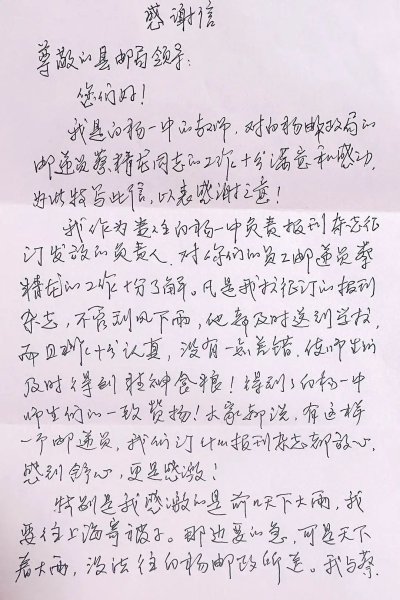 感谢信
尊敬的县邮局领导:
您们好!
我是白杨一中的教师,对白杨邮政局的
邮递员蔡精龙同志的工作十分满意和感动,
为此特写此信,以表感谢之意!
我作为责任白杨一中负责报刊杂志征
订发放的负责人,对你们的员工邮递员蔡
精龙的工作十分了解。凡是我校征订的报刊
杂志,不管刮风下雨,他都及时送到学校,
而且工作十分认真,没有一点差错,使师生们
及时得到精神食粮!得到了白杨一中
师生们的一致赞扬!大家都说,有这样
一个邮递员,我们订什么报刊杂志都放心,
感到舒心,更是感激!
特别是我感激的是前几天下大雨,我
要往上海寄被子。那边要的急,可是天下
着大雨,没法往白杨邮政所送。我与蔡